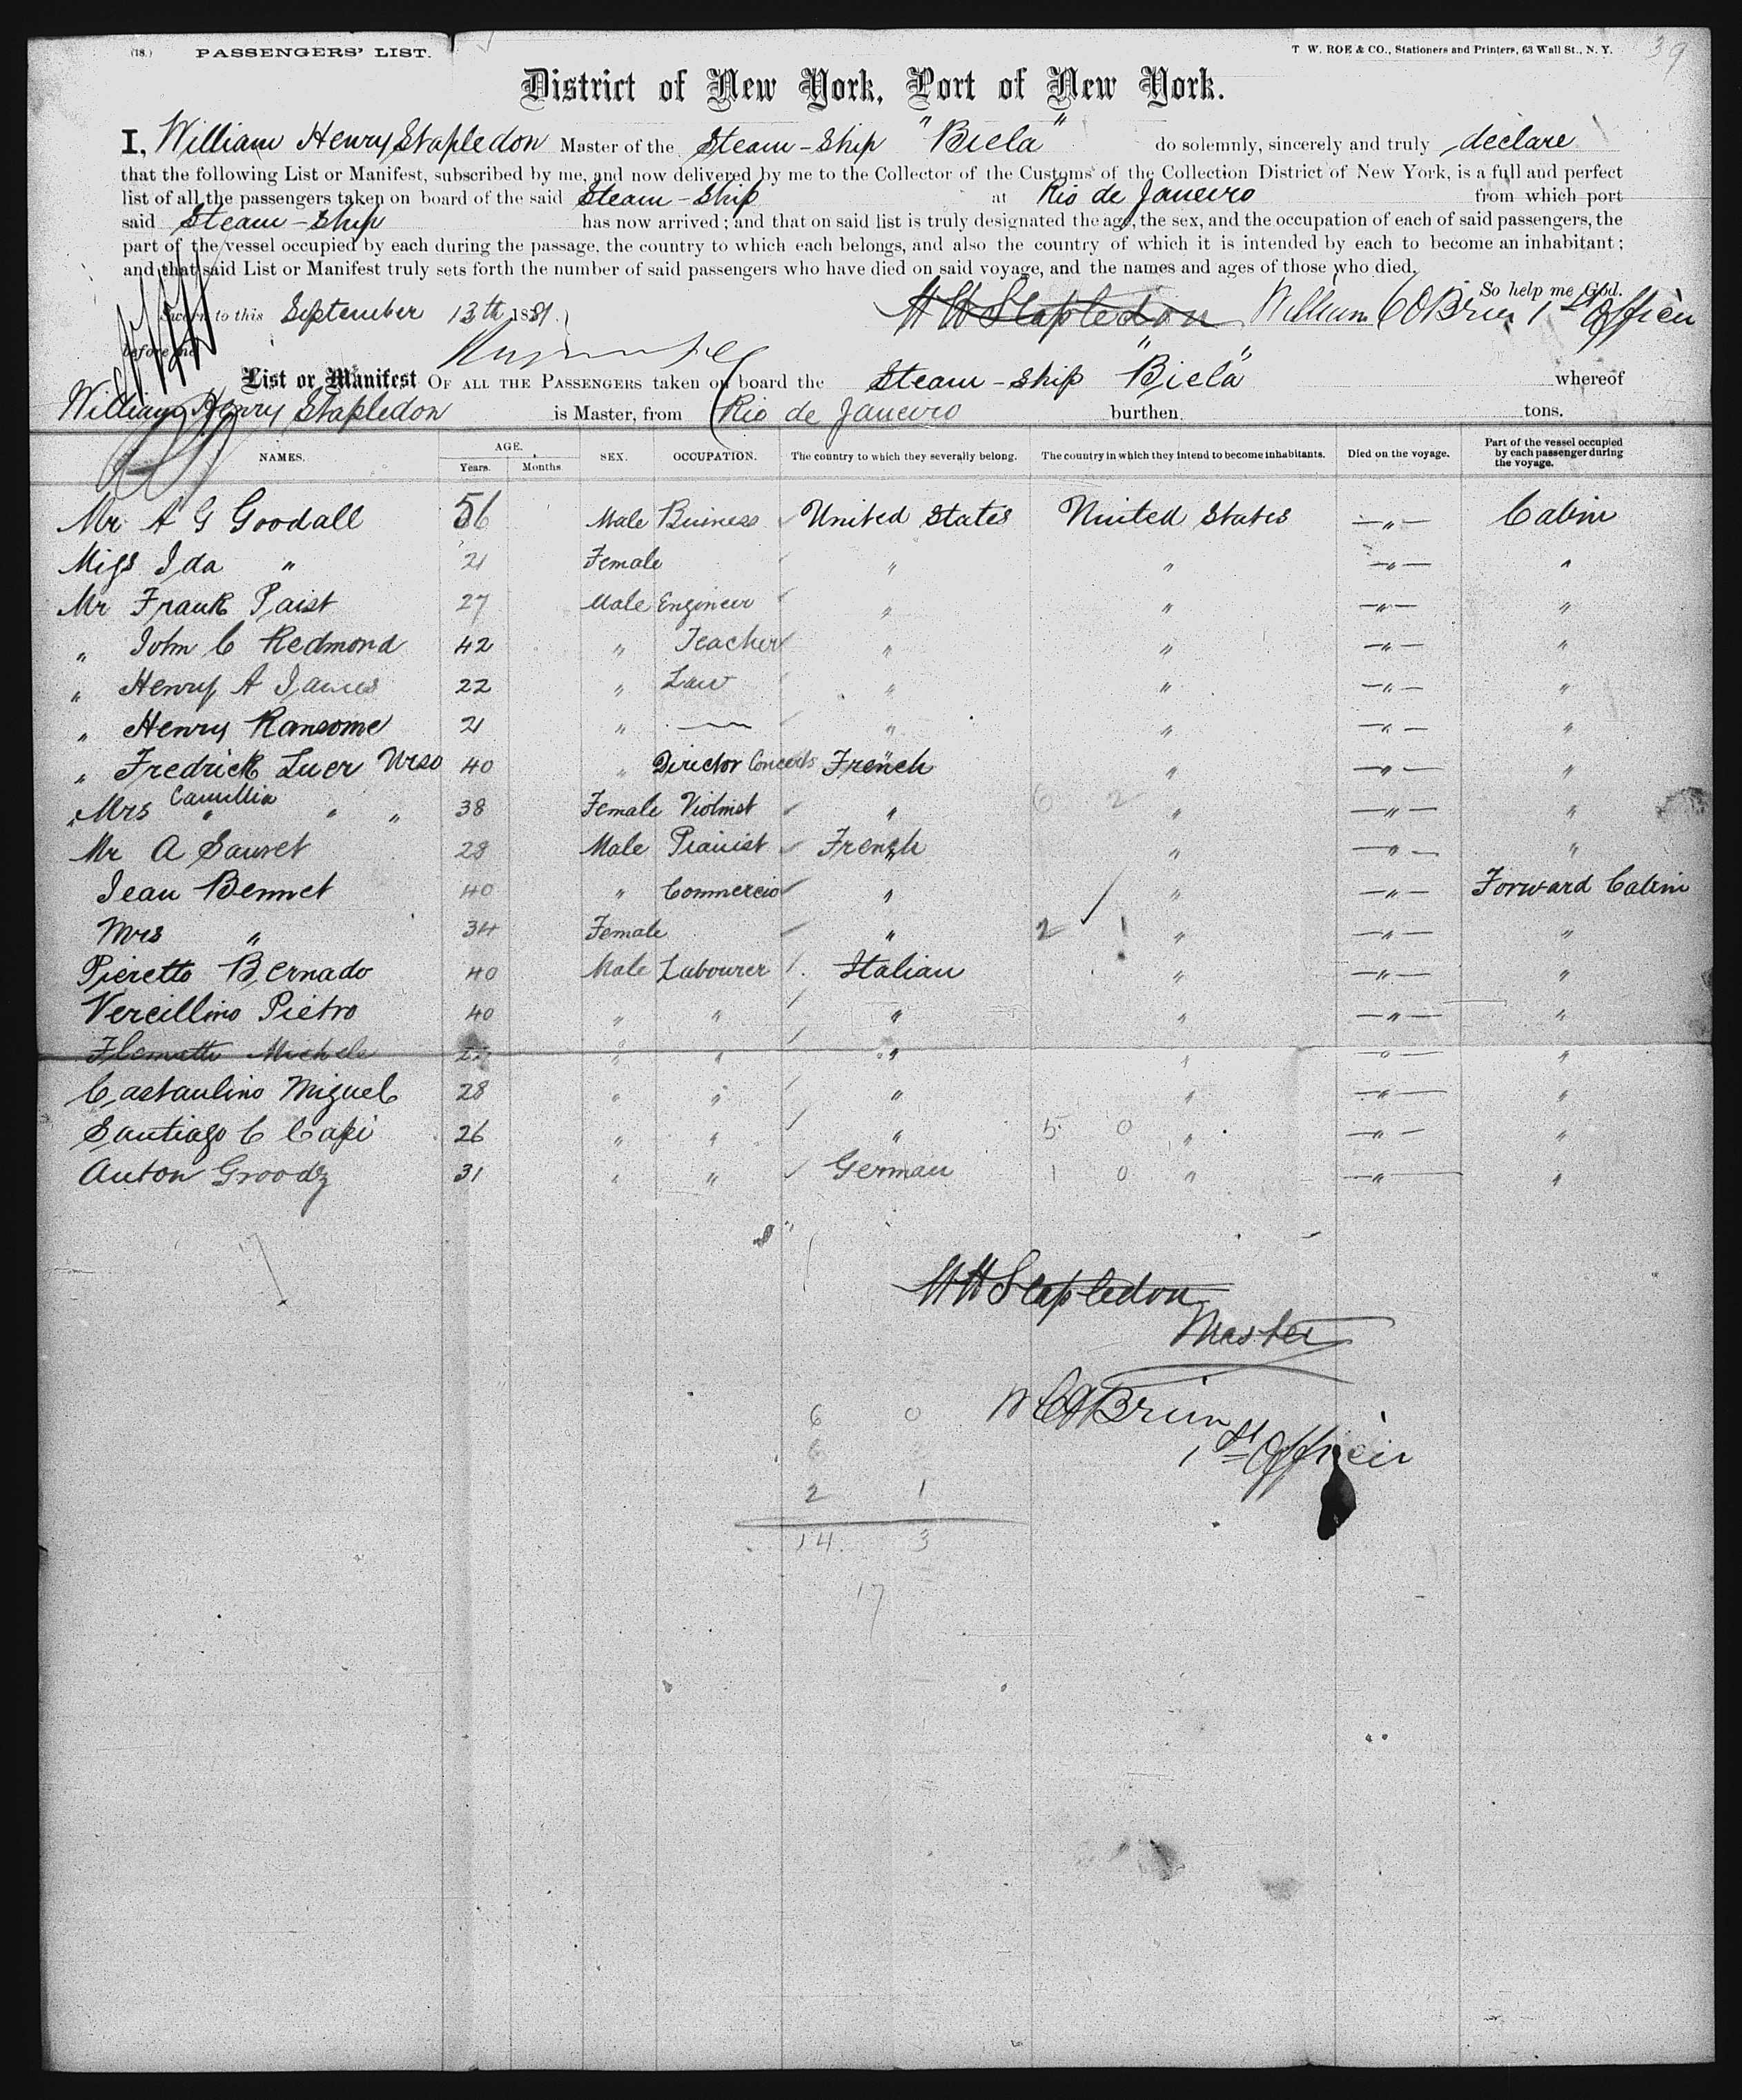 (18.) PASSENGERS' LIST. T. W. ROE & CO., Stationers and Printers, 63 Wall St., N. Y. 39
District of New York, Port of New York.
I, William Henry Stapledon Master of the Steam-Ship "Biela" do solemnly, sincerely and truly declare
that the following List or Manifest, subscribed by me, and now delivered by me to the Collector of the Customs of the Collection District of New York, is a full and perfect
list of all the passengers taken on board of the said Steam-Ship at Rio de Janeiro from which port
said Steam-Ship has now arrived; and that on said list is truly designated the age, the sex, and the occupation of each of said passengers, the
part of the vessel occupied by each during the passage, the country to which each belongs, and also the country of which it is intended by each to become an inhabitant;
and that said List or Manifest truly sets forth the number of said passengers who have died on said voyage, and the names and ages of those who died.
So help me God.
Sworn to this September 13th 1881. W H Stapledon William C OBrien 1st Officer
before me
List or Manifest OF ALL THE PASSENGERS taken on board the Steam-Ship "Biela" whereof
William Henry Stapledon is Master, from Rio de Janeiro burthen tons.
NAMES. AGE. Years. Months. SEX. OCCUPATION. The country to which they severally belong. The country in which they intend to become inhabitants. Died on the voyage. Part of the vessel occupied by each passenger during the voyage.
Mr A G Goodall 56 Male Business United States United States —"— Cabin
Miss Ida " 21 Female " " —"— "
Mr Frank Paist 27 Male Engineer " " —"— "
" John C Redmond 42 " Teacher " " —"— "
" Henry A James 22 " Law " " —"— "
" Henry Ransome 21 " — " " —"— "
" Fredrick Luer Urso 40 " Director Concerts French " —"— "
" Mrs Camillia " " 38 Female Violinist " 6 2 " —"— "
Mr A Sauret 28 Male Pianist French " —"— "
Jean Bennet 40 " Commercio " " —"— Forward Cabin
Mrs " 34 Female " 2 1 " —"— "
Pieretto Bernado 40 Male Labourer Italian " —"— "
Vercillino Pietro 40 " " " " —"— "
Michele " " " " —"— "
Castaulino Miguel 28 " " " " —"— "
Santiago C Capi 26 " " " 5 0 " —"— "
Anton Groodz 31 " " German 1 0 " —"— "
17
W H Stapledon
Master
W C OBrien
1st Officer
6 0
6
2 1
14 3
17